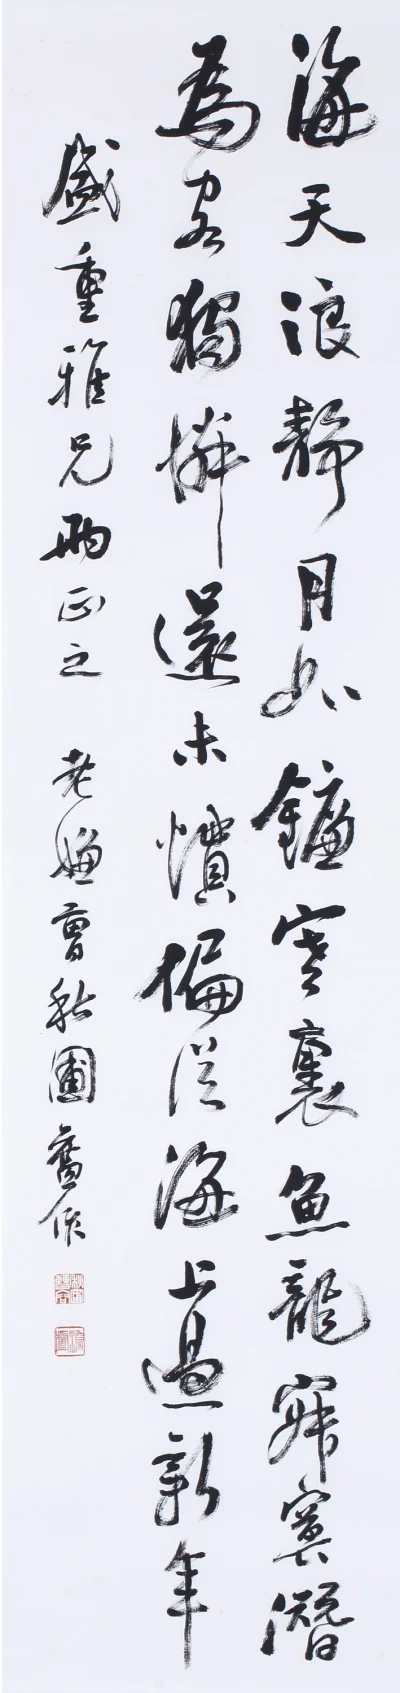 海天浪靜月如鐮裏魚龍寂寞潛
為客獨憐還未慣偏從海上過新年
盛重雅兄兩正之 老嫌曹秋圃舊作